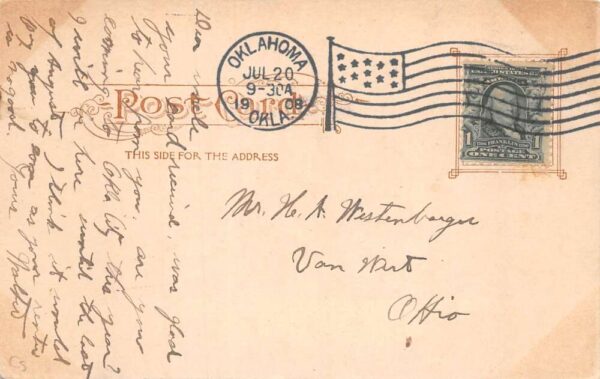 OKLAHOMA
JUL 20
9-30A
1908
OKLA.
POST CARD
THIS SIDE FOR THE ADDRESS
FRANKLIN
1 POSTAGE 1
ONE CENT
Mr. H. A. Westenbarger
Van Wert
Ohio
Dear uncle
your card received, was glad
to hear from you. are you
coming to Okla City this year?
I will be here until the last
of August. I think it would
pay you to come as your renter
is no good. Yours Walter